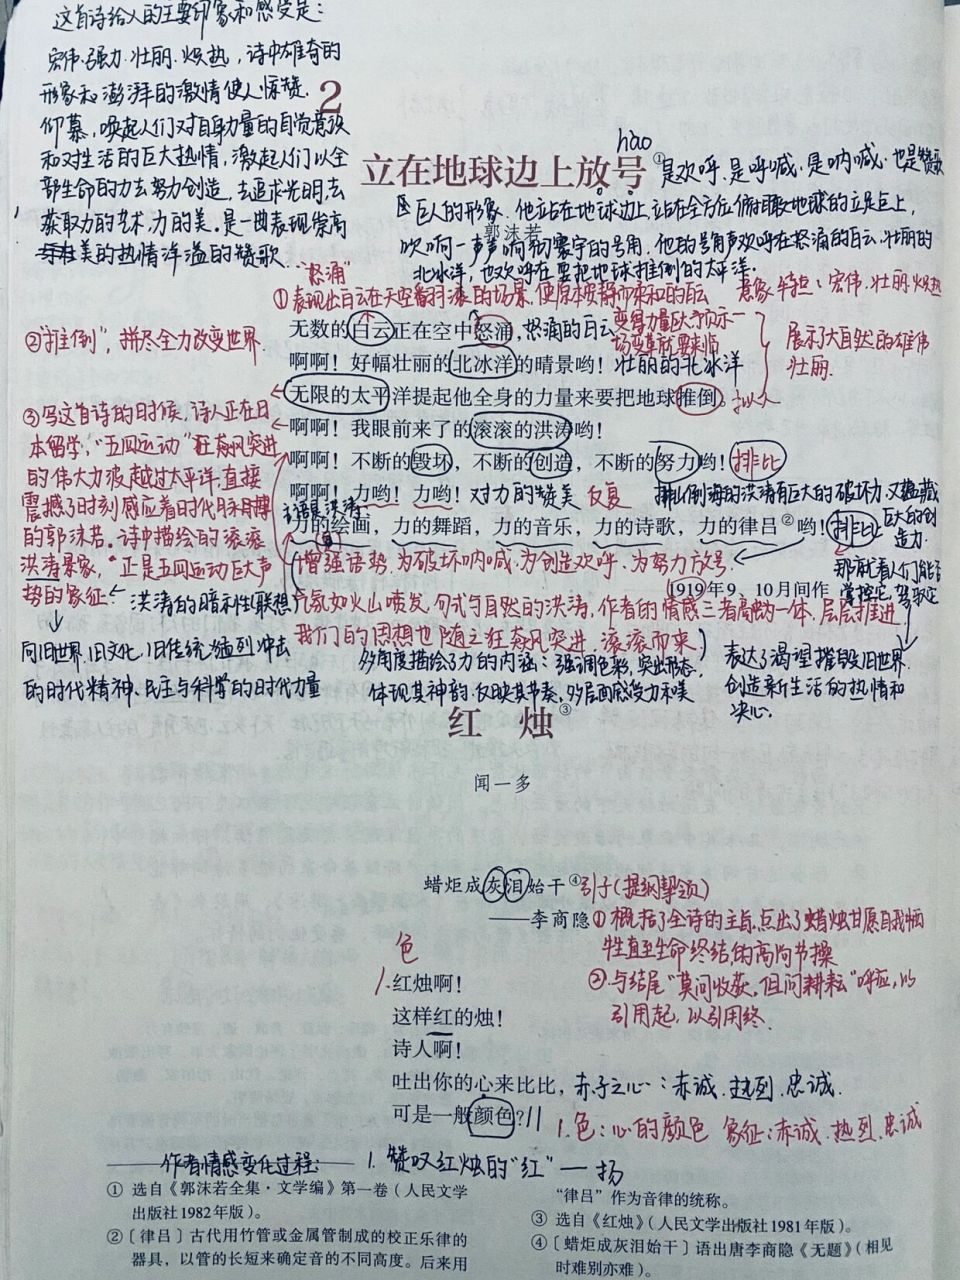 这首诗给人的主要印象和感受是：
宏伟、强力、壮丽、炽热，诗中雄奇的
形象和澎湃的激情使人惊赞
仰慕，唤起人们对自身力量的自觉意识
和对生活的巨大热情，激起人们以全
部生命的力去努力创造，去追求光明，去
获取力的艺术，力的美。是一曲表现崇高
美的热情洋溢的赞歌
2
hào
立在地球边上放号①
是欢呼，是呼喊，是呐喊，也是赞歌
郭沫若
巨人的形象，他站在地球边上，站在全方位俯瞰地球的立足点上，
吹响一声声响彻寰宇的号角，他的号角声欢呼在怒涌的白云，壮丽的
北冰洋，也欢呼在要把地球推倒的太平洋。
"怒涌"
①表现出白云在天空翻滚的场景，使原本安静而柔和的白云
变得力量巨大，预示一
场变革就要来临
意象特点：宏伟、壮丽、炽热
②"推倒"，拼尽全力改变世界
无数的白云正在空中怒涌，怒涌的白云
啊啊！好幅壮丽的北冰洋的晴景哟！壮丽的北冰洋
展示了大自然的雄伟
壮丽.
无限的太平洋提起他全身的力量来要把地球推倒。拟人
啊啊！我眼前来了的滚滚的洪涛哟！
啊啊！不断的毁坏，不断的创造，不断的努力哟！排比
啊啊！力哟！力哟！对力的赞美 反复
力的绘画，力的舞蹈，力的音乐，力的诗歌，力的律吕②哟！排比
③写这首诗的时候，诗人正在日
本留学，"五四运动"狂飙突进
的伟大力波越过太平洋，直接
震撼了时刻感应着时代脉搏
的郭沫若。诗中描绘的滚滚
洪涛景象，"正是五四运动巨大声
势的象征
洪涛的暗示性（联想）
向旧世界、旧文化、旧传统猛烈冲击
的时代精神、民主与科学的时代力量
排山倒海的洪涛有巨大的破坏力，又蕴藏
巨大的创
造力.
那就看人们能否
掌控它，驾驭它
主语是洪涛：
增强语势，为破坏呐喊，为创造欢呼，为努力放号.
1919年9、10月间作
气氛如火山喷发，句式与自然的洪涛，作者的情感三者高融一体，层层推进
我们的思想也随之狂飙突进，滚滚而来
多角度描绘了力的内涵：强调色彩，突出形态，
体现其神韵，反映其节奏，多层面感受力和美
表达了渴望摧毁旧世界，
创造新生活的热情和
决心.
红 烛③
闻一多
蜡炬成灰泪始干④ 引子（提纲挈领）
——李商隐
①概括了全诗的主旨，点出了蜡烛甘愿自我牺
牲直至生命终结的高尚节操
②与结尾"莫问收获，但问耕耘"呼应，以
引用起，以引用终.
色
1.红烛啊！
这样红的烛！
诗人啊！
吐出你的心来比比，赤子之心：赤诚、热烈、忠诚.
可是一般颜色？
1.色：心的颜色 象征：赤诚、热烈、忠诚
作者情感变化过程：
1.赞叹红烛的"红"— 扬
① 选自《郭沫若全集·文学编》第一卷（人民文学
出版社1982年版）。
②〔律吕〕古代用竹管或金属管制成的校正乐律的
器具，以管的长短来确定音的不同高度。后来用
"律吕"作为音律的统称。
③ 选自《红烛》（人民文学出版社1981年版）。
④〔蜡炬成灰泪始干〕语出唐李商隐《无题》（相见
时难别亦难）。